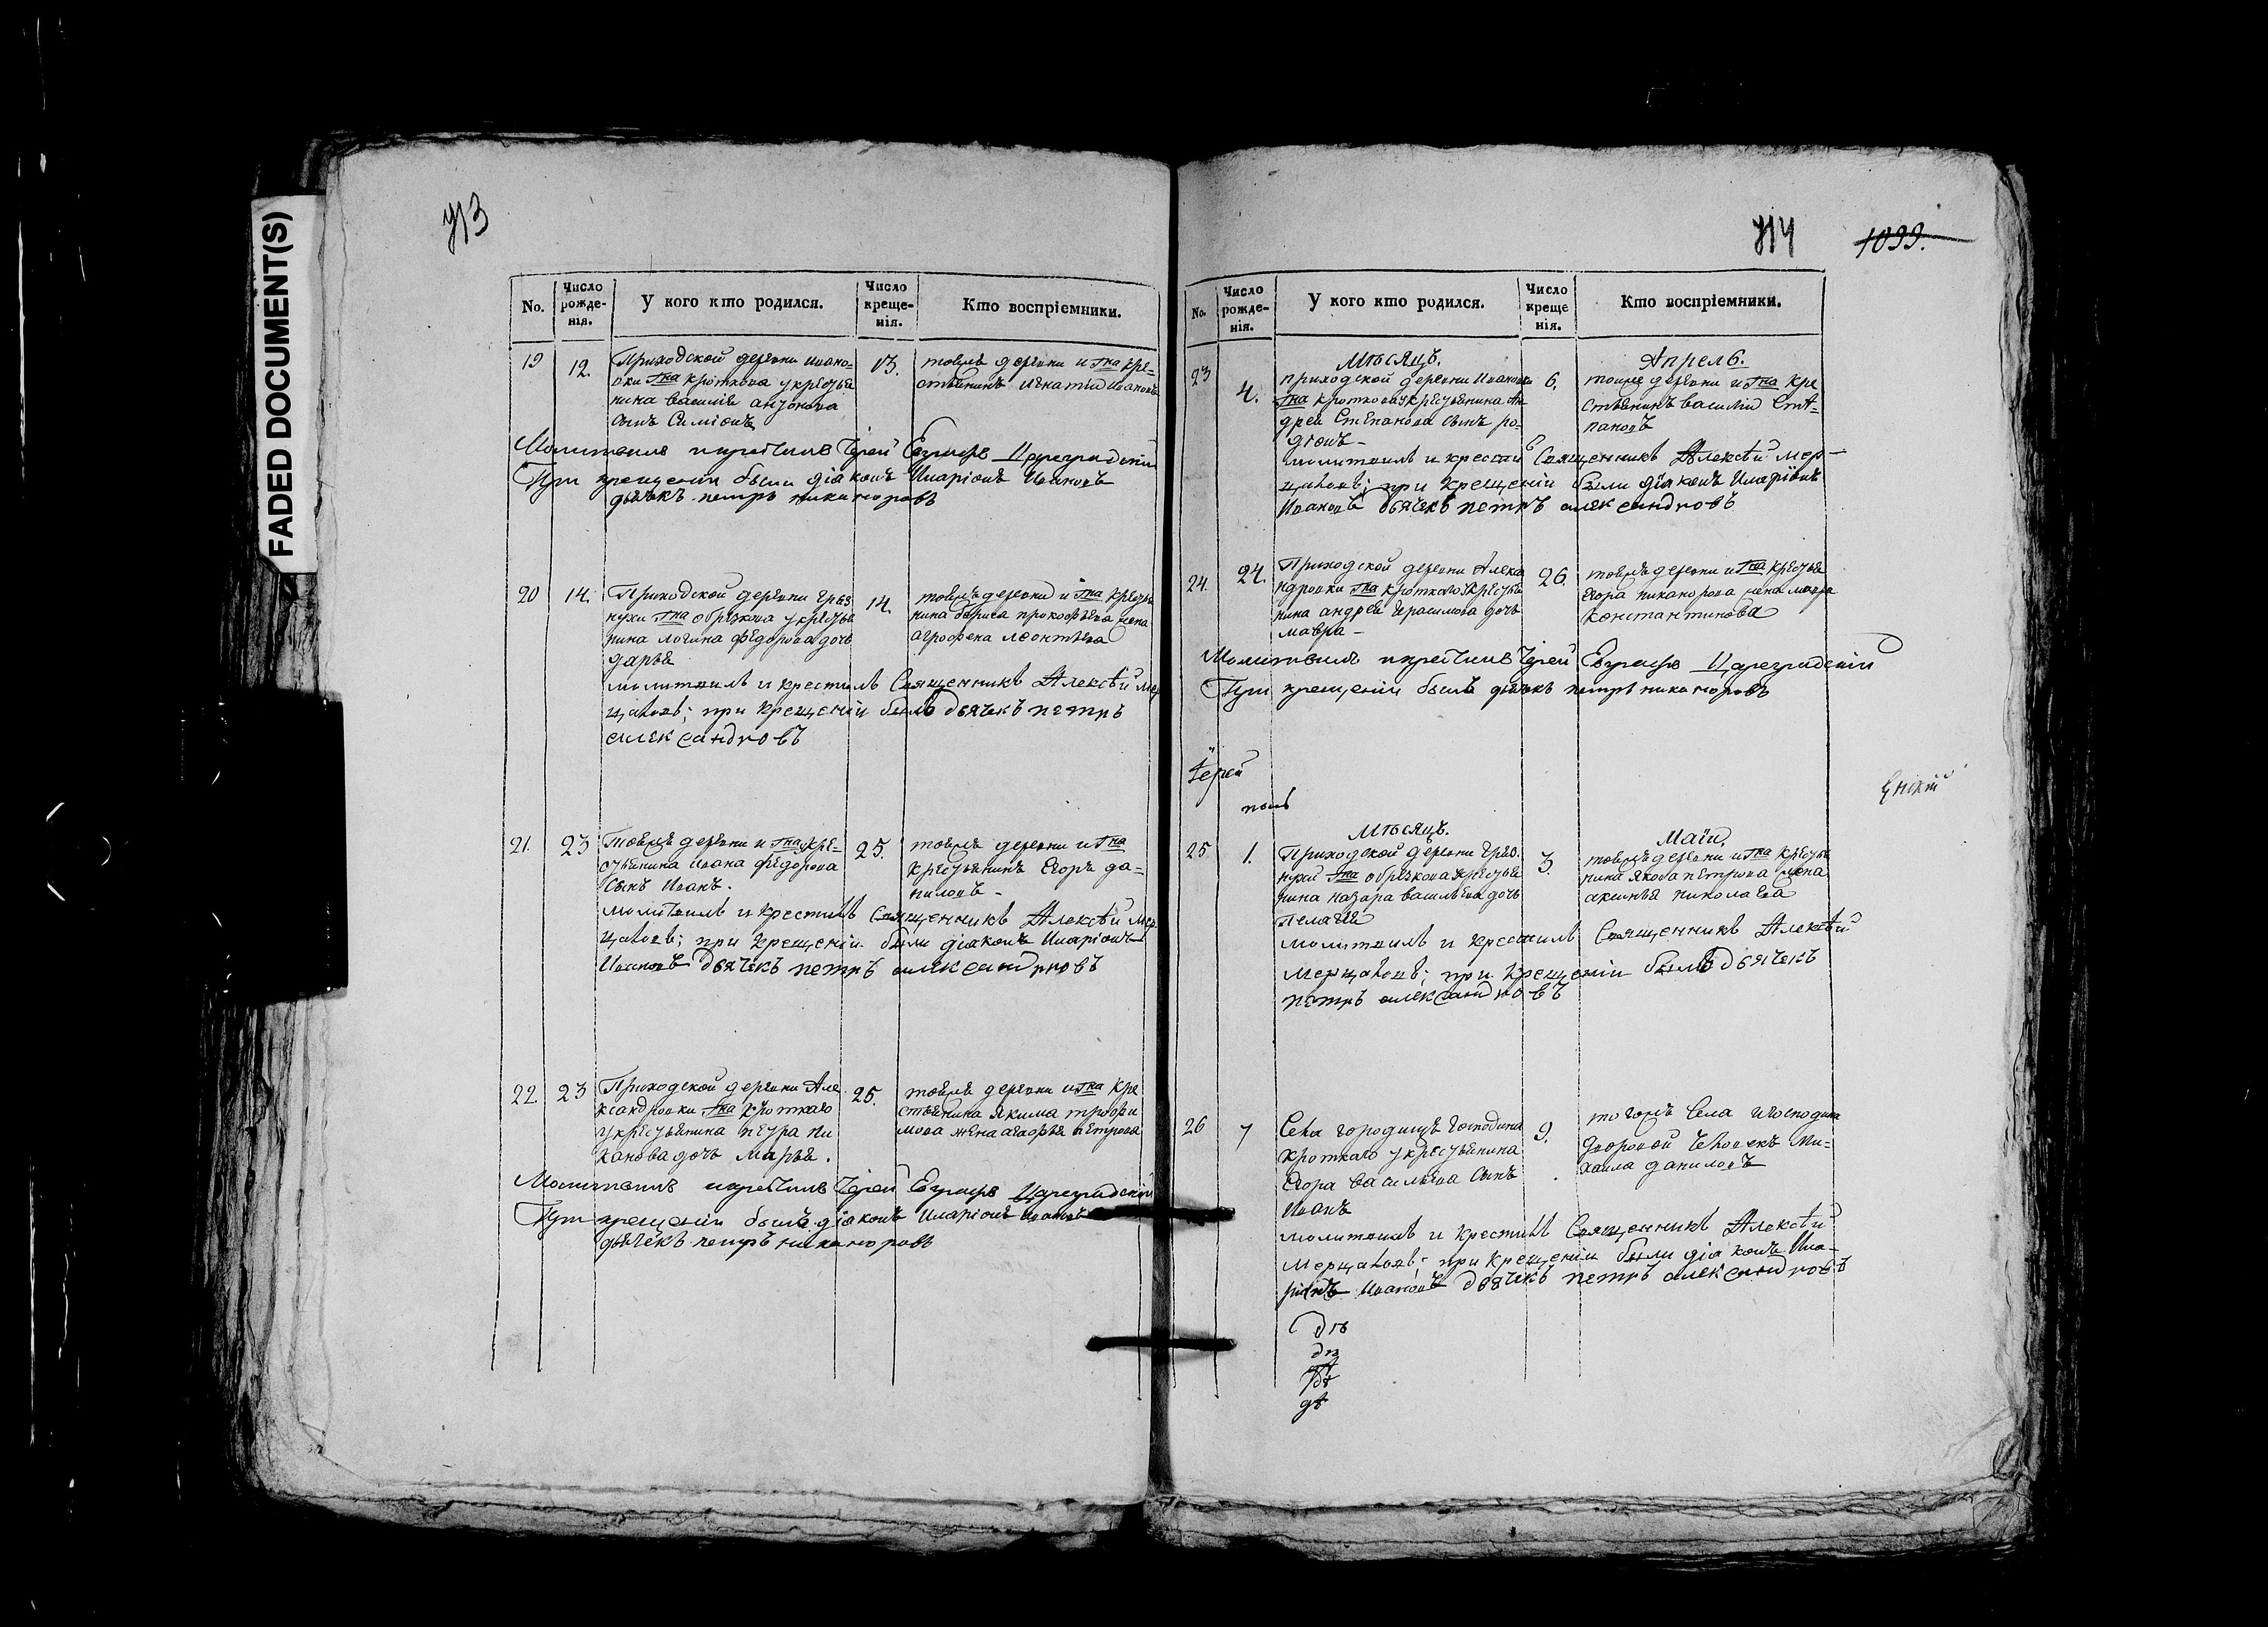 FADED DOCUMENT(S)
713
No.
Число рожде-нія.
У кого кто родился.
Число креще-нія.
Кто воспріемники.
19
12.
Приходской деревни Ивано-
вки Гна Кроткова у кресть
нина василія антонова
сынъ Симіонъ
13.
тоеже деревни и Гна кре-
стьянинъ Игнатій Ивановъ
Молитвилъ и крестилъ Іерей Евграфъ Цареградскій
При крещеніи были діаконъ Иларіонъ Ивановъ
дьячекъ петръ никаноровъ
20
14.
Приходской деревни Гряз
нухи Гна обрѣзкова у кресть
нина логина федорова дочь
дарья
14.
тоежъ деревни и Гна кресть
нина бориса прокофьева жена
агрофена леонтьева
молитвилъ и крестилъ Священникъ Алексѣй Мер
цаловъ; при крещеніи былъ дьячекъ петръ
александровъ
21.
23
Тоежъ деревни и Гна кре-
стьянина ивана федорова
Сынъ Иванъ.
25.
тоеже деревни и Гна
крестьянинъ Егоръ да-
ниловъ
молитвилъ и крестилъ Священникъ Алексѣй Мер
цаловъ; при крещеніи были діаконъ Иларіонъ
Ивановъ дьячекъ петръ александровъ
22.
23
Приходской деревни Але
ксандровки Гна Кроткаго
у крестьянина петра ни
канова дочь Марья.
25.
тоеже деревни и Гна кре
стьянина Якима трофи
мова жена агафья петрова
Молитвилъ и крестилъ Іерей Евграфъ Цареградскій
При крещеніи былъ діаконъ Иларіонъ Ивановъ
дьячекъ петръ никаноровъ
714
1099.
No.
Число рожде-нія.
У кого кто родился.
Число креще нія.
Кто воспріемники.
Мѣсяцъ.
Апрель.
23
4.
приходской деревни Ивановки
Гна Кроткова у крестьянина Ан
дрея Степанова сынъ ро-
діонъ
6.
тоиже деревни и Гна кре
стьянинъ василій Сте-
пановъ
молитвилъ и крестилъ Священникъ Алексѣй Мер-
цаловъ; при крещеніи были діаконъ Иларіонъ
Ивановъ дьячекъ петръ александровъ
24.
24.
Приходской деревни Алекса
ндровки Гна Кроткаго у кресть
нина андрея Герасимова дочь
мавра
26.
тоежъ деревни и Гна кресть
Егора никанорова жена мавра
Константинова
Молитвилъ и крестилъ Іерей Евграфъ Цареградскій
При крещеніи былъ дьячекъ петръ никаноровъ
Іерей
Мѣсяцъ.
Маіи.
25
1.
Приходской деревни Гряз
нухи Гна обрѣзкова у кресть
нина назара васильева дочь
Пелагія
3.
тоежъ деревни и Гна кресть
нина Якова петрова жена
аксинья николаева
молитвилъ и крестилъ Священникъ Алексѣй
Мерцаловъ; при крещеніи былъ дьячекъ
петръ александровъ
26
7
Села городищъ Господина
Кроткаго у крестьянина
Егора васильева Сынъ
Иванъ
9.
тогожъ Села и господина
дворовой человекъ Ми-
хаила даниловъ
молитвилъ и крестилъ Священникъ Алексѣй
Мерцаловъ; при крещеніи были діаконъ Ила-
ріонъ Ивановъ дьячекъ петръ александровъ